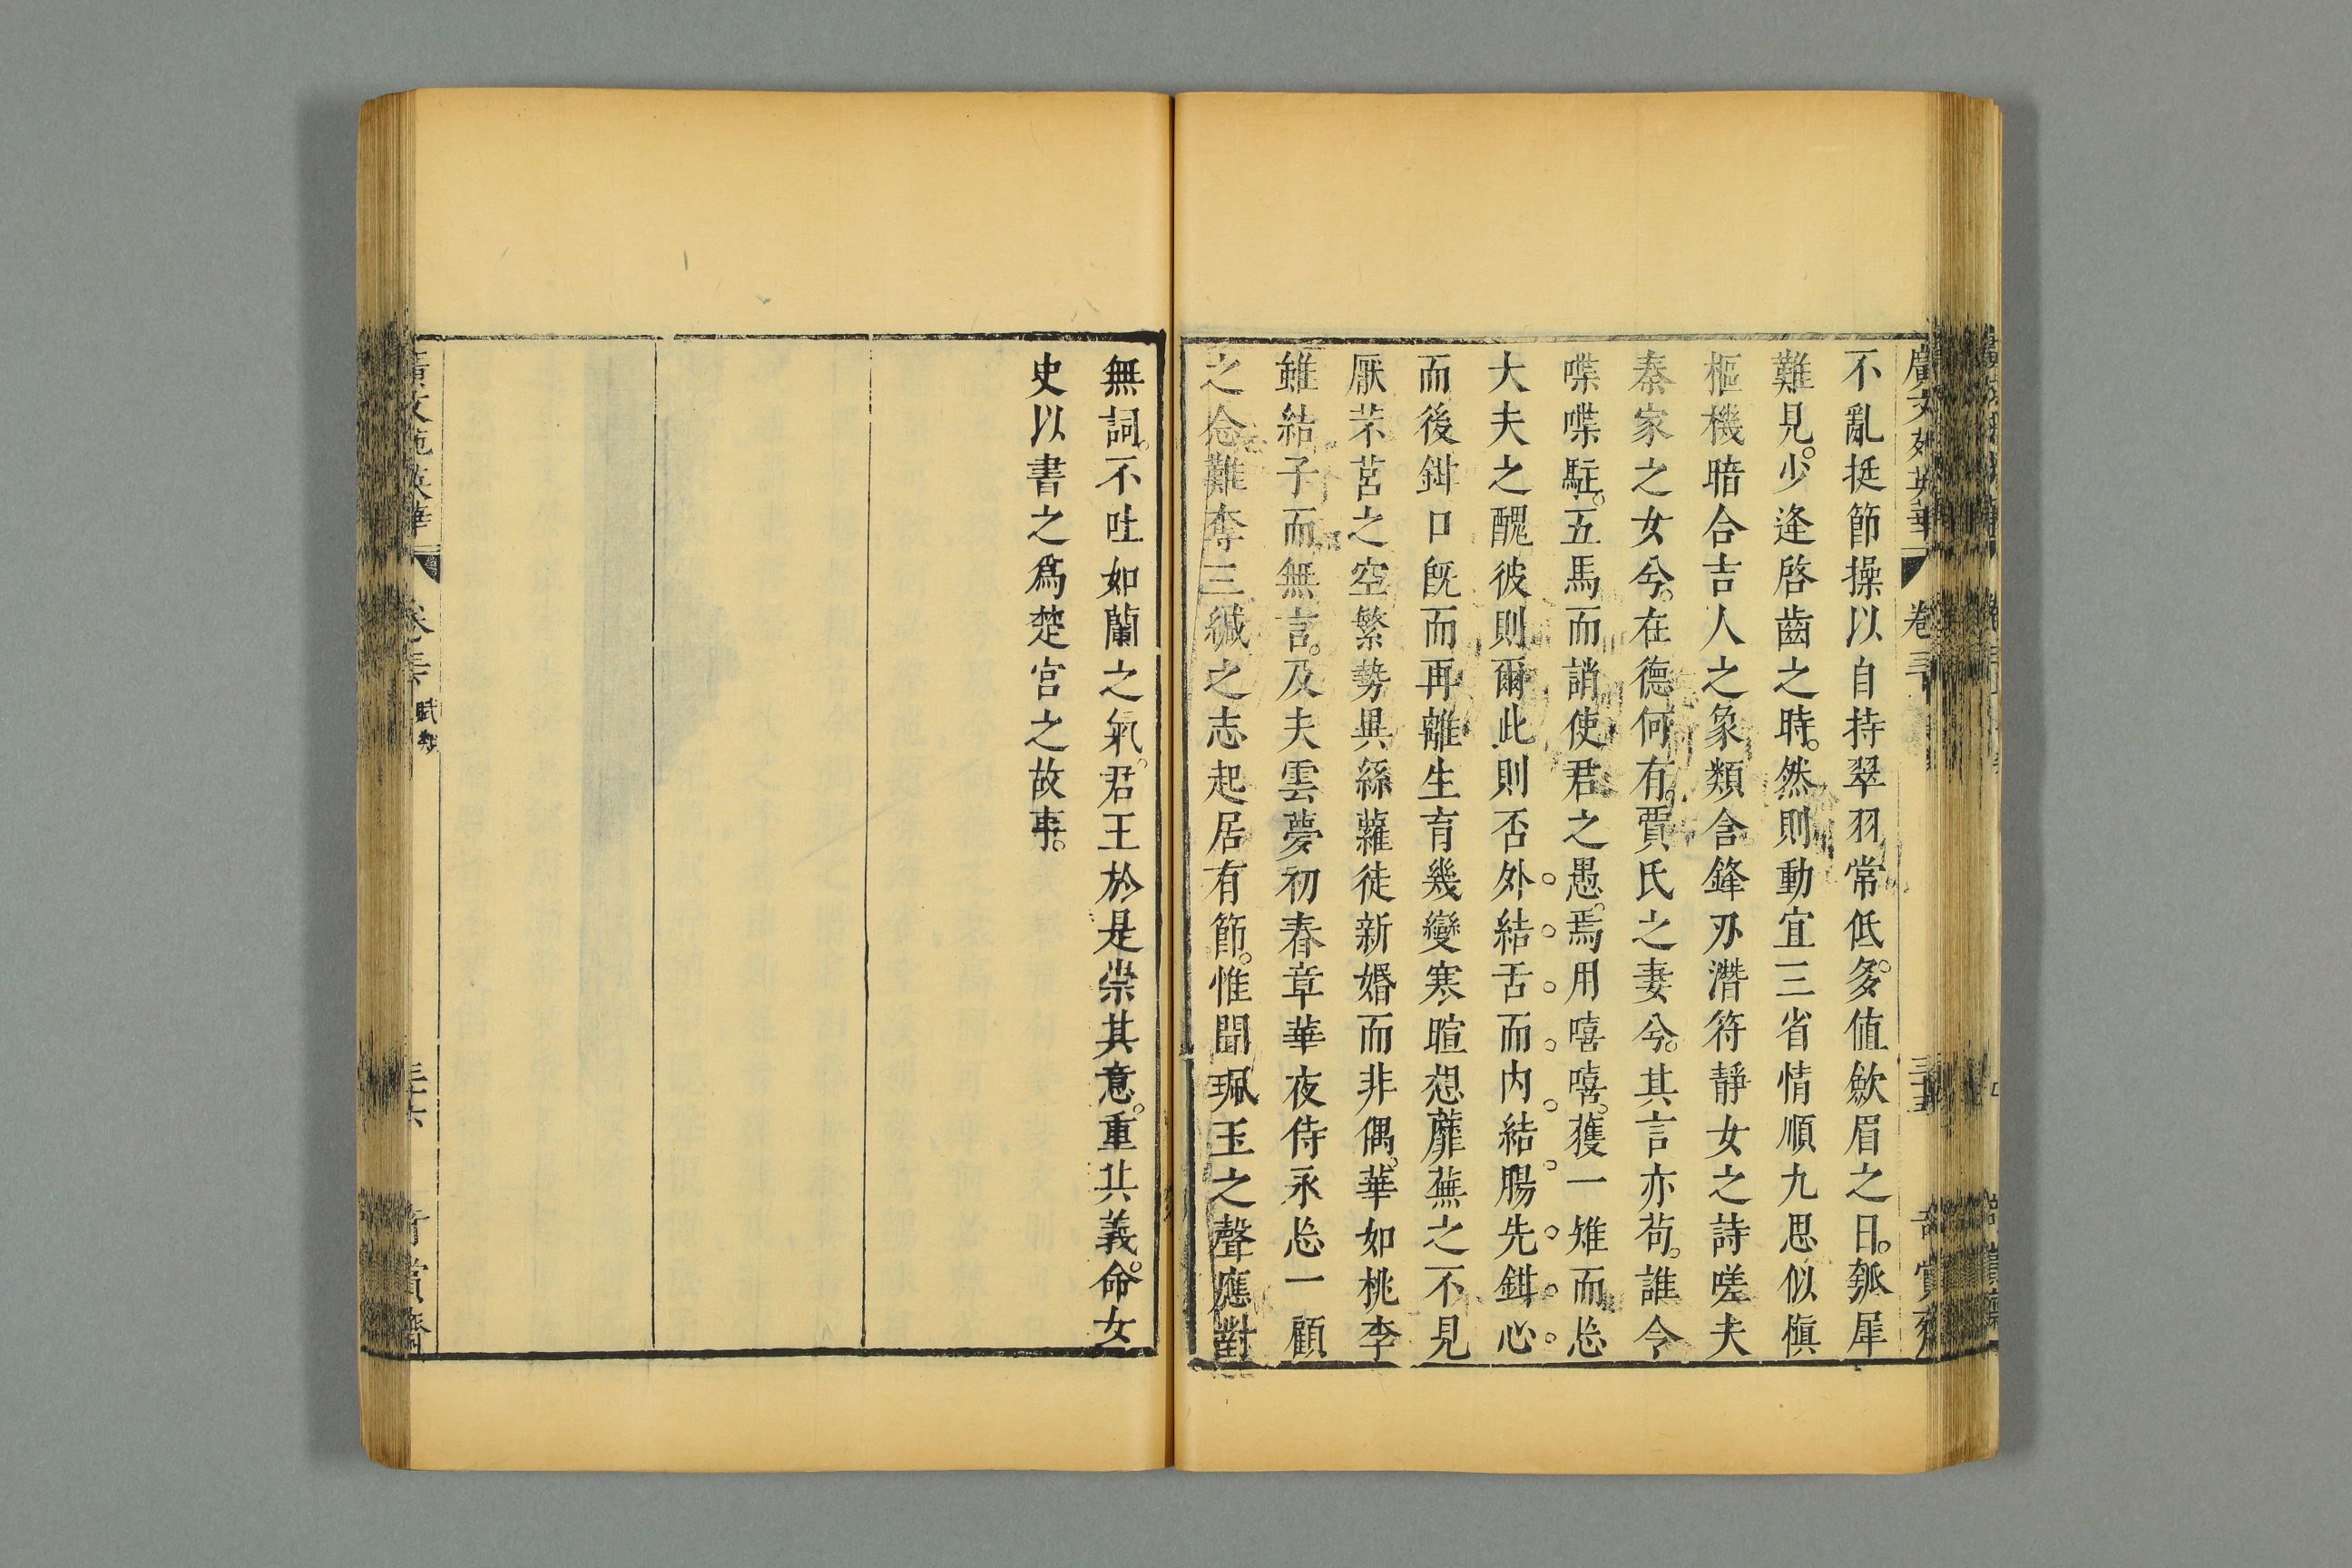 廣文苑英華 卷三
不亂挺節操以自持翠羽常低。多值歛眉之日。瓠犀
難見。少逢啓齒之時。然則動宜三省情順九思似慎
樞機暗合吉人之象類含鋒刃潛符靜女之詩嗟夫
秦家之女兮。在德何有。賈氏之妻兮。其言亦苟。誰令
喋喋駐。五馬而誚使君之愚。焉用嘻嘻。獲一雉而㤀
大夫之醜彼則爾此則否外結舌而内結腸先鉗心
而後鉗口既而再離生育幾變寒暄想蘼蕪之不見
厭芣苢之空繁勢異絲蘿徒新婚而非偶。華如桃李
雖結子而無言。及夫雲夢初春章華夜侍永㤀一顧
之念難奪三緘之志起居有節。惟聞珮玉之聲應對
無詞。不吐如蘭之氣。君王於是崇其意。重其義。命女
史以書之爲楚宮之故事。